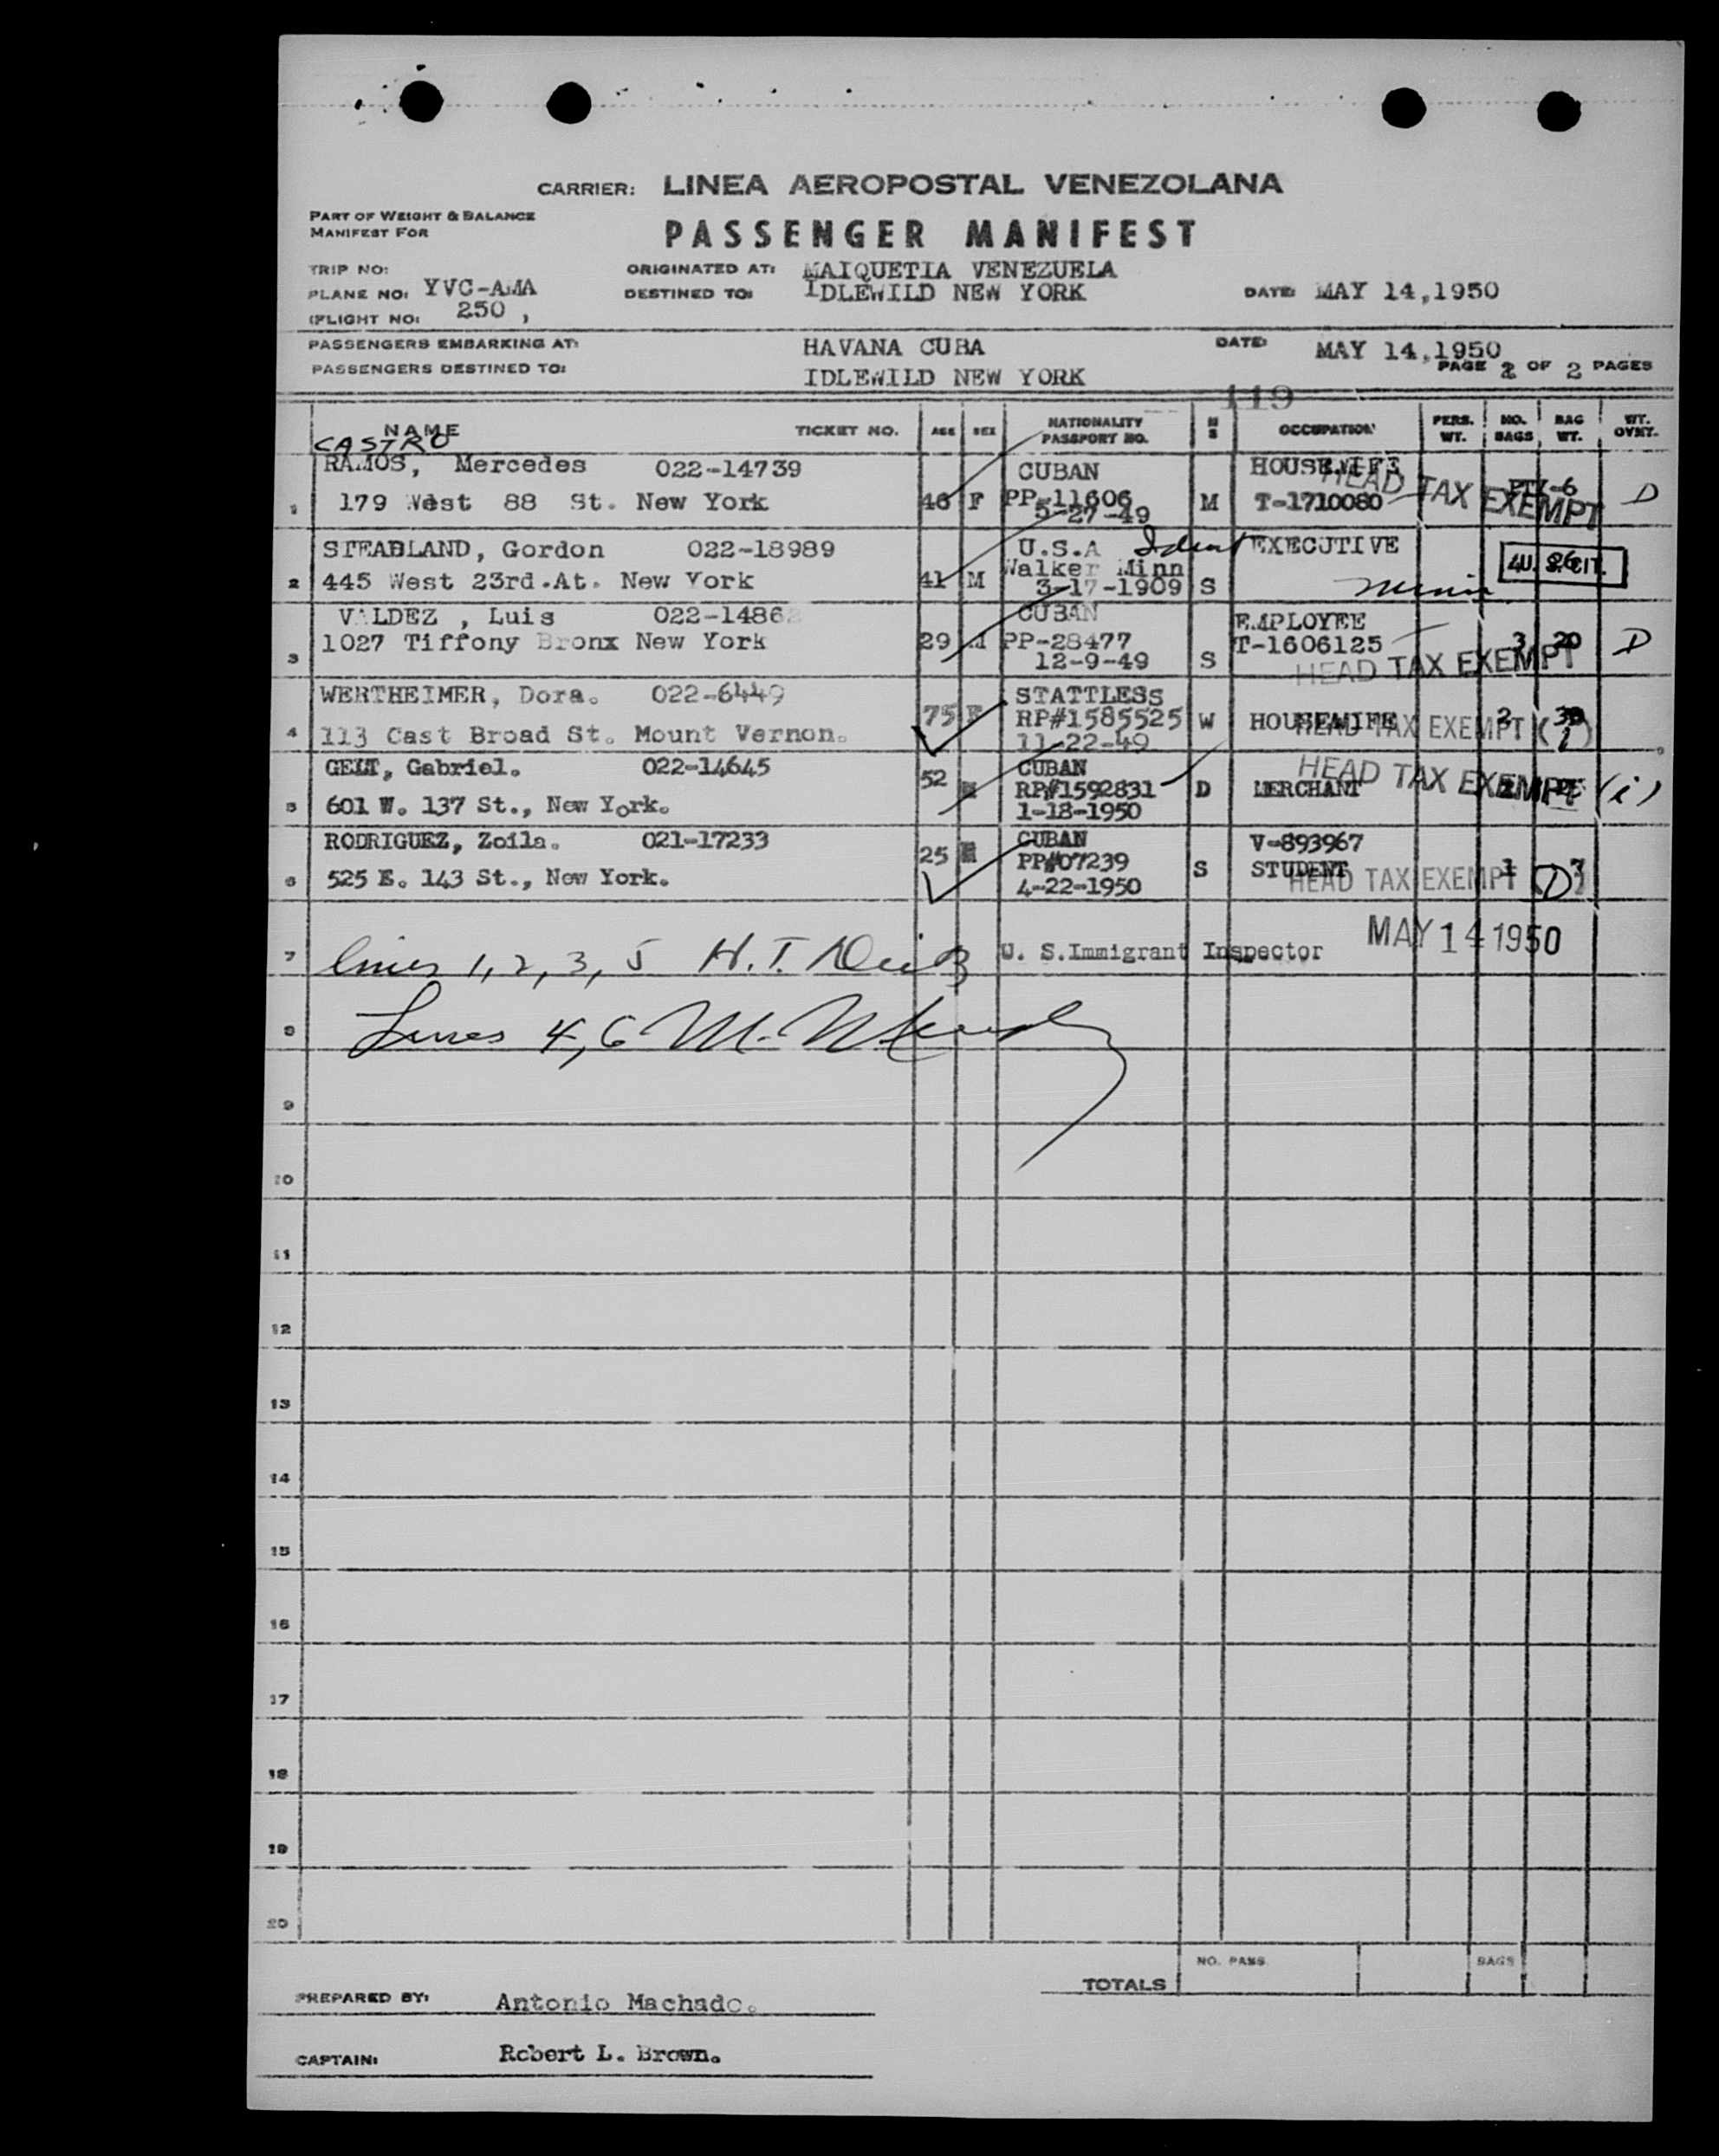 CARRIER: LINEA AEROPOSTAL VENEZOLANA
PART OF WEIGHT & BALANCE
MANIFEST FOR
PASSENGER MANIFEST
TRIP NO:
ORIGINATED AT: MAIQUETIA VENEZUELA
PLANE NO: YVC-AMA
DESTINED TO: IDLEWILD NEW YORK
DATE: MAY 14,1950
(FLIGHT NO: 250 )
PASSENGERS EMBARKING AT: HAVANA CUBA
DATE: MAY 14,1950
PASSENGERS DESTINED TO: IDLEWILD NEW YORK
PAGE 2 OF 2 PAGES
119
NAME TICKET NO. AGE SEX NATIONALITY PASSPORT NO. M S OCCUPATION PERS. WT. NO. BAGS BAG WT. WT. OVWT.
CASTRO
RAMOS, Mercedes 022-14739 CUBAN HOUSEWIFE
1 179 West 88 St. New York 46 F PP-11606 M T-1710080 HEAD TAX EXEMPT D
5-27-49
STEABLAND, Gordon 022-18989 U.S.A Ident EXECUTIVE
2 445 West 23rd.At. New York 41 M Walker Minn S U. S. CIT.
3-17-1909
VALDEZ , Luis 022-1486 CUBAN EMPLOYEE
1027 Tiffony Bronx New York 29 M PP-28477 T-1606125 3 20 D
3 12-9-49 S HEAD TAX EXEMPT
WERTHEIMER, Dora. 022-6449 STATTLESS
75 F RP#1585525 W HOUSEWIFE HEAD TAX EXEMPT 2
4 113 Cast Broad St. Mount Vernon. 11-22-49
GELT, Gabriel. 022-14645 52 CUBAN HEAD TAX EXEMPT
RP#1592831 D MERCHANT (i)
5 601 W. 137 St., New York. 1-18-1950
RODRIGUEZ, Zoila. 021-17233 CUBAN V-893967
25 PP#07239 S STUDENT HEAD TAX EXEMPT 1 (D) 7
6 525 E. 143 St., New York. 4-22-1950
7 lines 1, 2, 3, 5 H.T. U. S.Immigrant Inspector MAY 14 1950
8 Lines 4, 6 M.
9
10
11
12
13
14
15
16
17
18
19
20
TOTALS NO. PASS. BAGS
PREPARED BY: Antonio Machado.
CAPTAIN: Robert L. Brown.